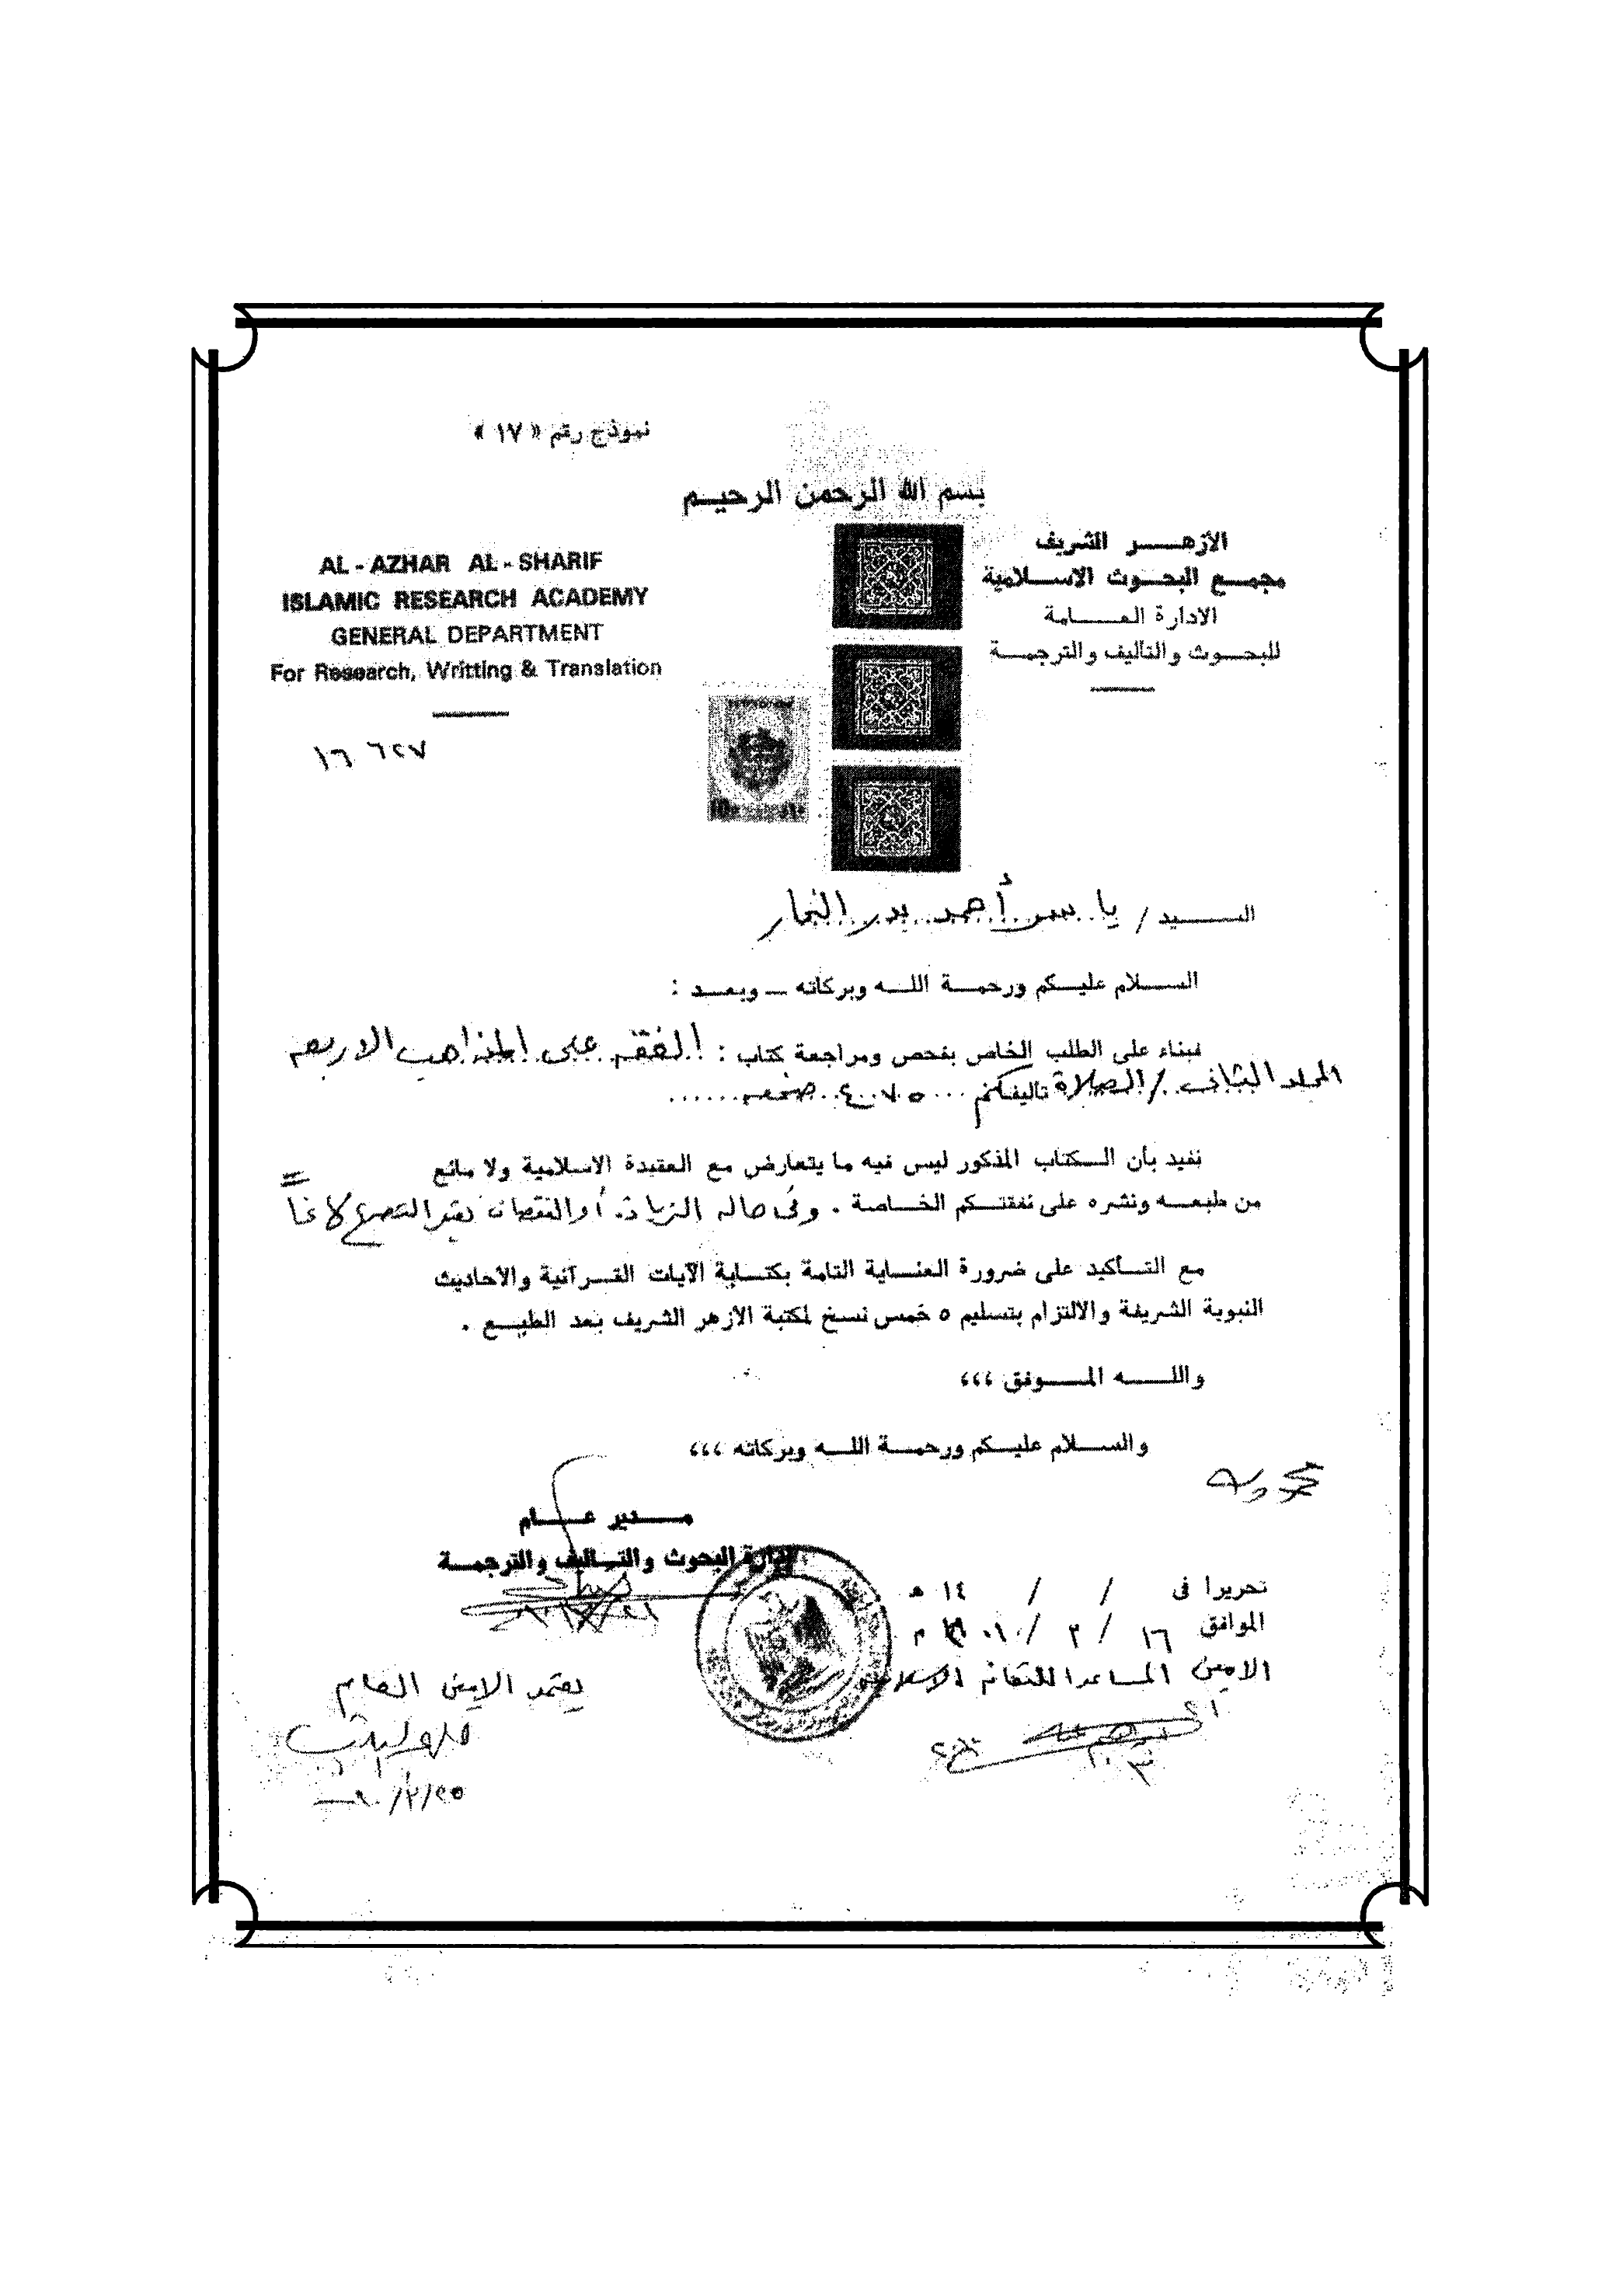 نموذج رقم « ١٧ »
بسم الله الرحمن الرحيم
الأزهر الشريف
مجمع البحوث الاسلامية
الادارة العامة
للبحوث والتأليف والترجمة
AL - AZHAR AL - SHARIF
ISLAMIC RESEARCH ACADEMY
GENERAL DEPARTMENT
For Research, Writting & Translation
السيد / ياسر أحمد بدر النجار
السلام عليكم ورحمة الله وبركاته - وبعد :
فبناء على الطلب الخاص بفحص ومراجعة كتاب : الفقه على المذاهب الاربعه
المجلد الثاني / الصلاة تأليفكم ٤٠٧٥ صفحه
نفيد بأن الكتاب المذكور ليس فيه ما يتعارض مع العقيدة الاسلامية ولا مانع
من طبعه ونشره على نفقتكم الخاصة . وفى حاله الزياده أو النقصان يعتبر التصريح لاغياً
مع التأكيد على ضرورة العناية التامة بكتابة الآيات القرآنية والأحاديث
النبوية الشريفة والالتزام بتسليم ٥ خمس نسخ لمكتبة الأزهر الشريف بعد الطبع .
والله الموفق ،،،
والسلام عليكم ورحمة الله وبركاته ،،،
مدير عام
ادارة البحوث والتأليف والترجمة
تحريرا فى / / ١٤ هـ
الموافق ١٦ / ٢ / م
الامين المساعد للثقافه الاسلاميه
يعتمد الامين العام